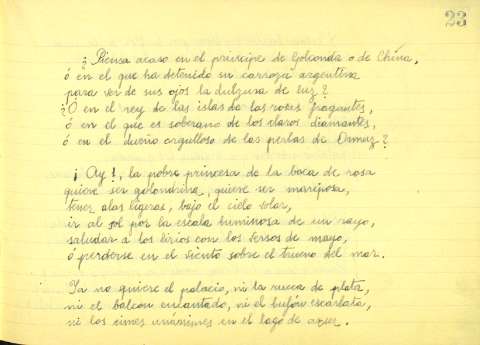 23
¿Piensa acaso en el principe de Golconda o de China,
ó en el que ha detenido su carroza argentina
para ver de sus ojos la dulzura de luz?
¿O en el rey de las islas de las rosas fragantes,
ó en el que es soberano de los claros diamantes,
ó en el dueño orgulloso de las perlas de Ormuz?
¡Ay!, la pobre princesa de la boca de rosa
quiere ser golondrina, quiere ser mariposa,
tener alas ligeras, bajo el cielo volar,
ir al sol por la escala luminosa de un rayo,
saludar a los lirios con los versos de mayo,
ó perderse en el viento sobre el trueno del mar.
Ya no quiere el palacio, ni la rueca de plata,
ni el balcon encantado, ni el bufón escarlata,
ni los cisnes unánimes en el lago de azur.